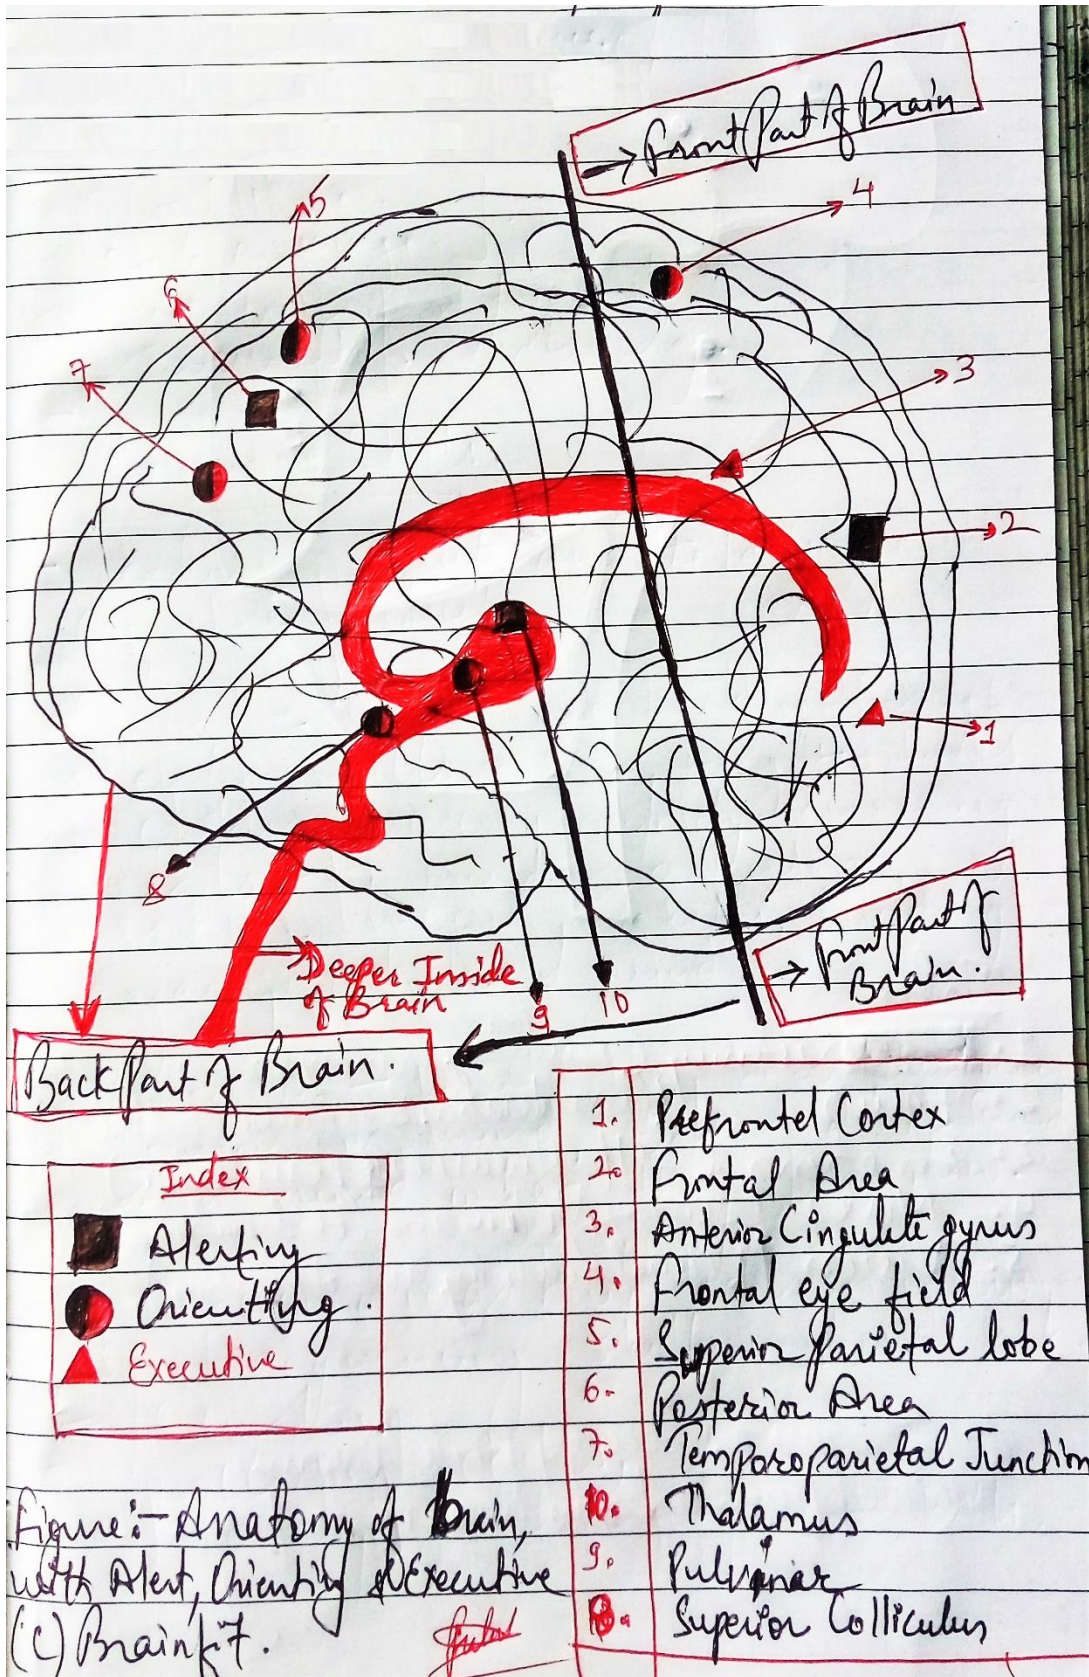 → Front Part of Brain
5
4
6
7
3
2
1
8
→ Deeper Inside
of Brain
9
10
→ Front Part of
Brain.
Back Part of Brain.
1. Prefrontel Cortex
2. Frontal Area
3. Anterior Cingulate gyrus
4. Frontal eye field
5. Superior Parietal lobe
6. Posterior Area
7. Temporoparietal Junction
10. Thalamus
9. Pulvinar
8. Superior Colliculus
Index
Alerting
Orienting.
Executive
Figure:- Anatomy of Brain,
with Alert, Orienting & Executive
(C) Brainfit.